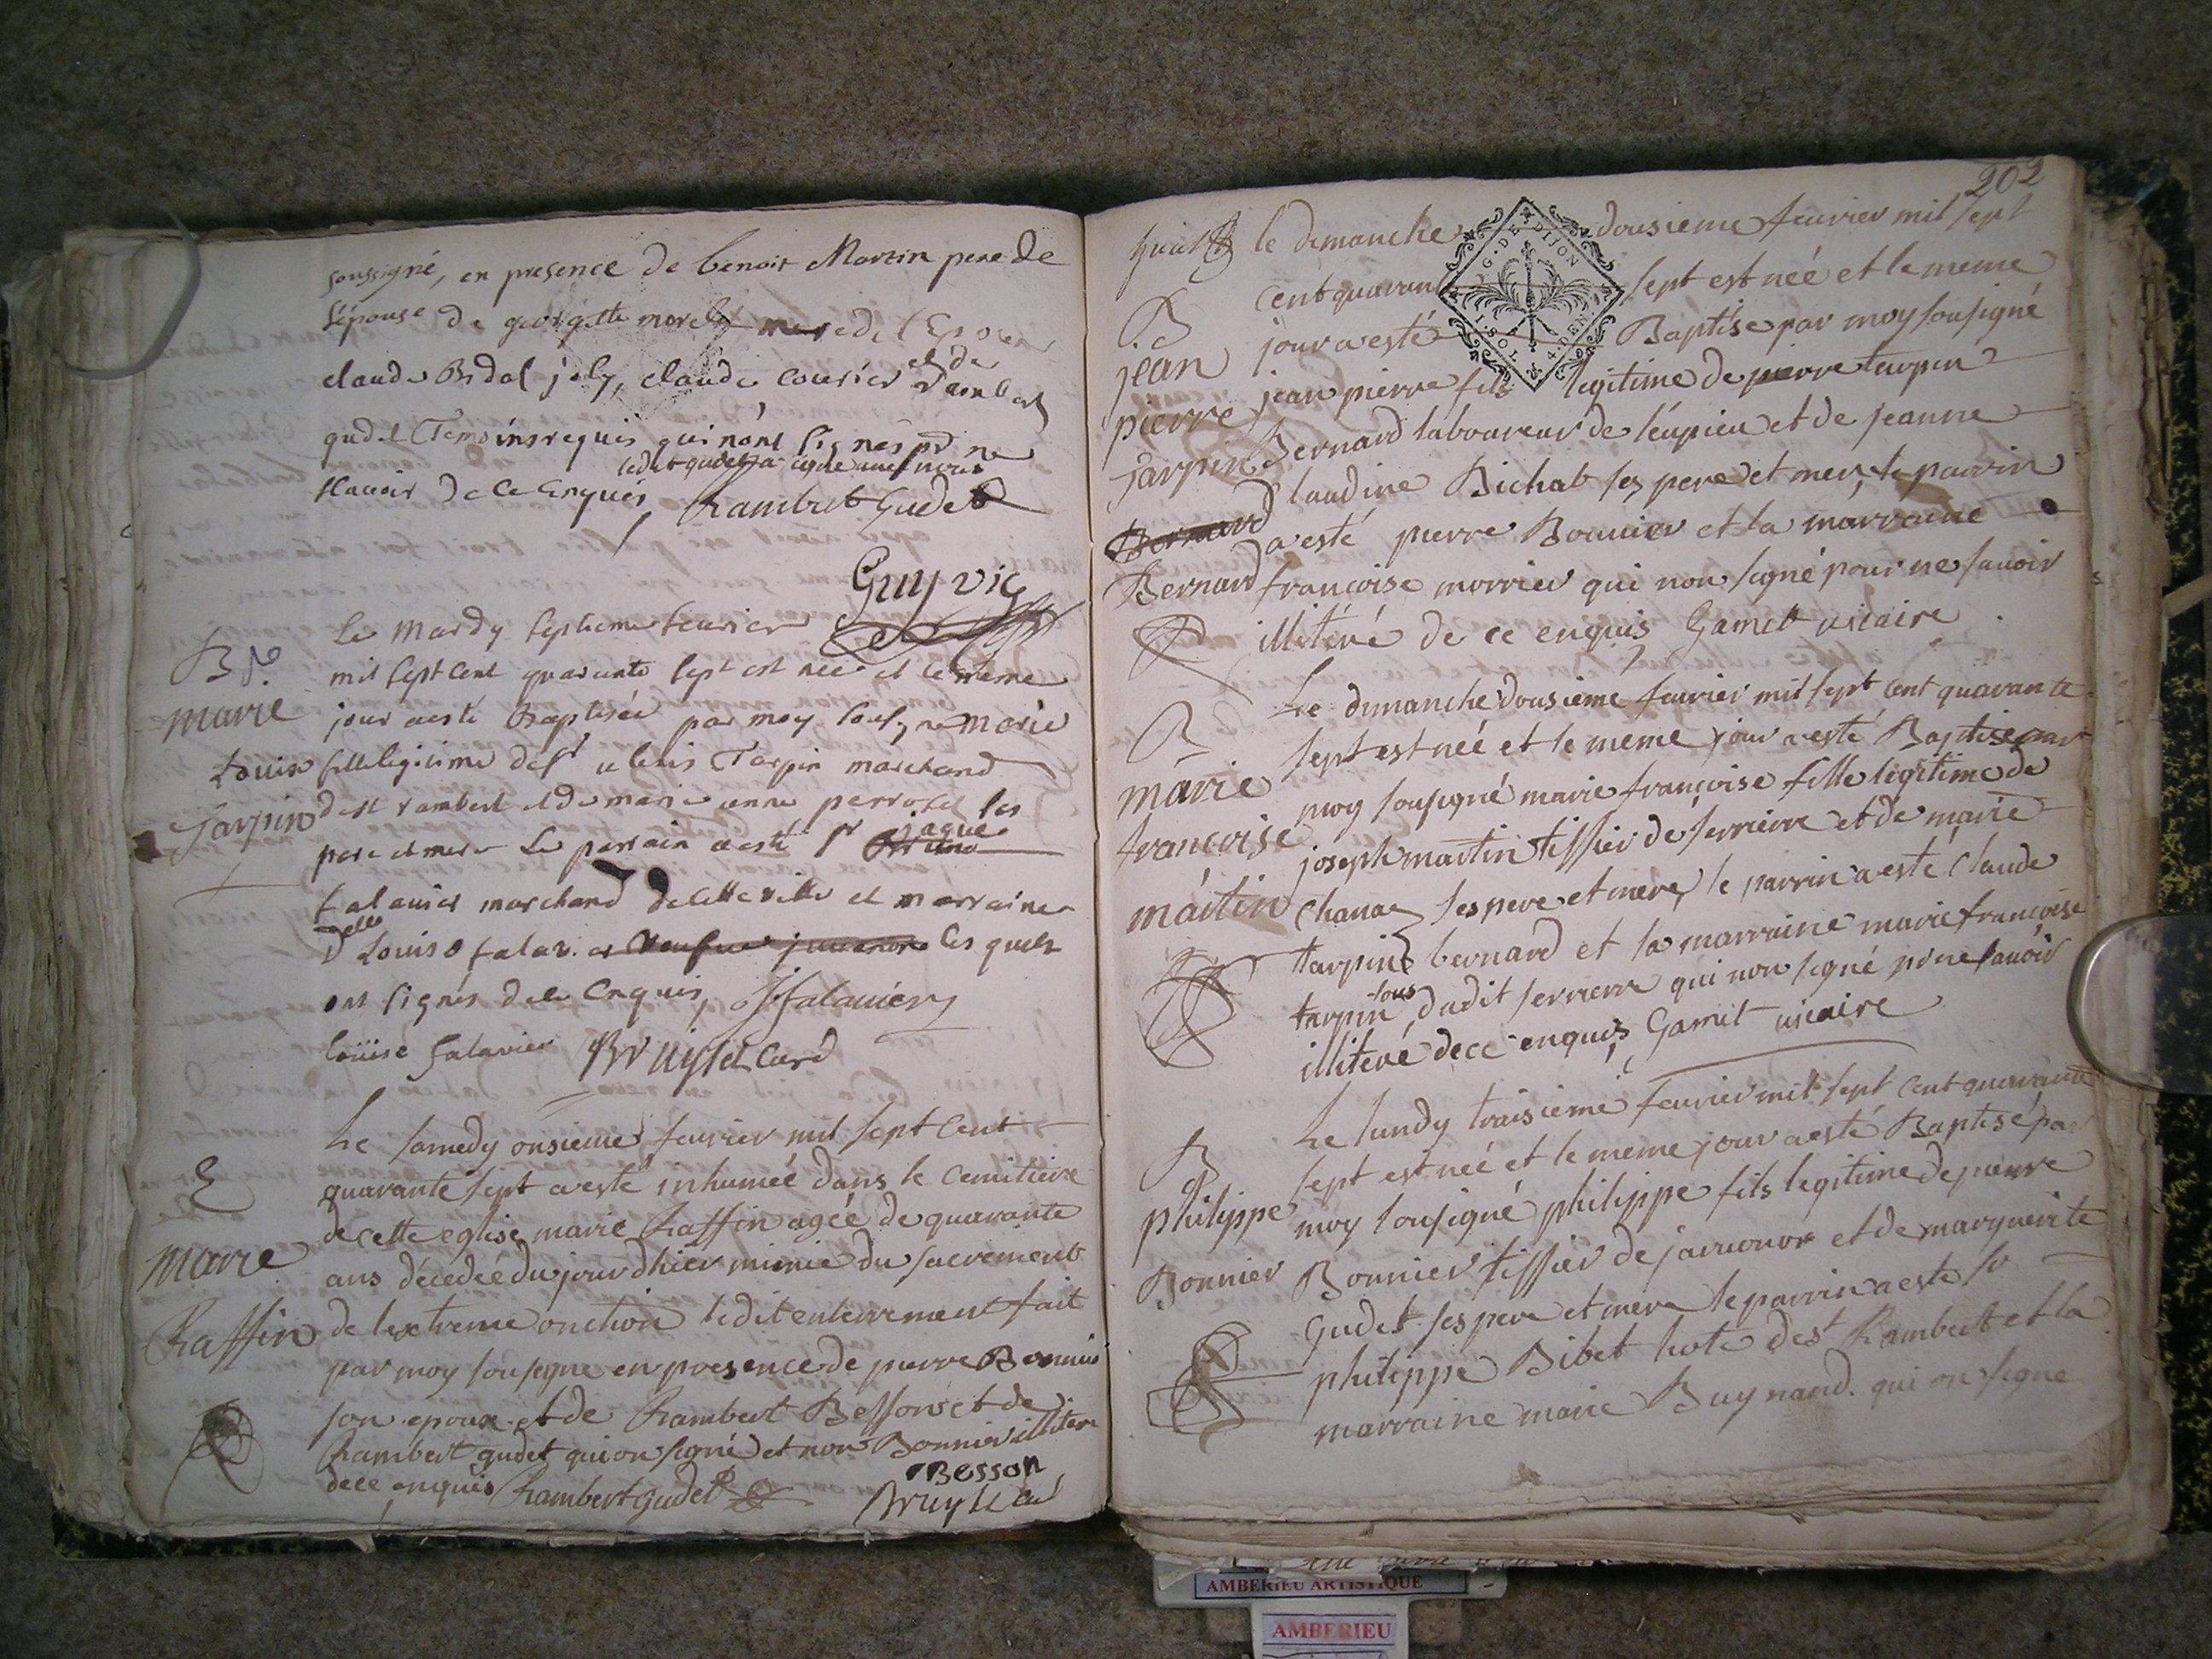 soussigné, en presence de benoit Martin pere de
l'épouse de georgette morel mere de l'Epouse
claude Bidal joly, claude courier et de Rambert
gudet Temoins requis qui nont signés pr ne
ledit gudet a signé avec nous
scavoir de ce Enquis Rambert Gudet
Guy vic
Le Mardy septieme fevrier
Bp.
mil sept cent quarante sept est née et le meme
marie
jour a esté Baptisée par moy sousigné Marie
Louise fille legitime de sr alexis Tarpin marchand
Jarpin de st rambert et de marie anne perrotet ses
pere et mere Le parrain a esté sr jaque
falavier marchand de cette ville et marraine
delle Louise falavier veufve juvanon les quels
ont signés de ce Enquis, J falavier
loüise falavier Bruyset Curé
Le samedy onsieme fevrier mil sept cent
E
quarante sept a esté inhumée dans le cemitiere
de cette eglise marie Raffin agée de quarante
marie
ans décedée du jour dhier munie du sacrement
Raffin de lextreme onction ledit enterrement fait
par moy sousigne en presence de pierre Bonnier
son epoux et de Rambert Besson et de
Rambert gudet qui on signé et non Bonnier illitere
de ce enquis Rambert gudet
Besson
Bruyset Curé
202
le dimanche dousieme fevrier mil sept
B
cent quarante sept est née et le meme
jean
jour a esté Baptise par moy sousigné
pierre
jean pierre fils legitime de pierre tarpin
Jarpin Bernard laboureur de leupieu et de jeanne
Bernard claudine Bichat ses pere et mere, le parrin
a esté pierre Bonnier et la marraine
Bernard francoise morrier qui non signé pour ne savoir
illiteré de ce enquis Gamet vicaire
Le dimanche dousieme fevrier mil sept cent quarante
B
sept est née et le meme jour a esté Baptise par
marie
moy sousigné marie francoise fille legitime de
francoise
joseph martin tissier de serrierre et de marie
martin
Chanaz ses pere et mere, le parrin a esté Claude
tarpin bernard et la marraine marie francoise
tarpin tous dudit serrierre qui non signé pr ne savoir
illiteré de ce enquis Gamet vicaire
Le lundy traisieme fevrier mil sept cent quarante
B
sept est née et le meme jour a esté Baptisé par
philippe
moy sousigné philippe fils legitime de pierre
Bonnier
Bonnier tissier de javornox et de marguerite
Gudet ses pere et mere le parrin a esté sr
philippe Bibet hote de st Rambert et la
marraine marie Buynand qui on signe
AMBERIEU ARTISTIQUE
AMBERIEU